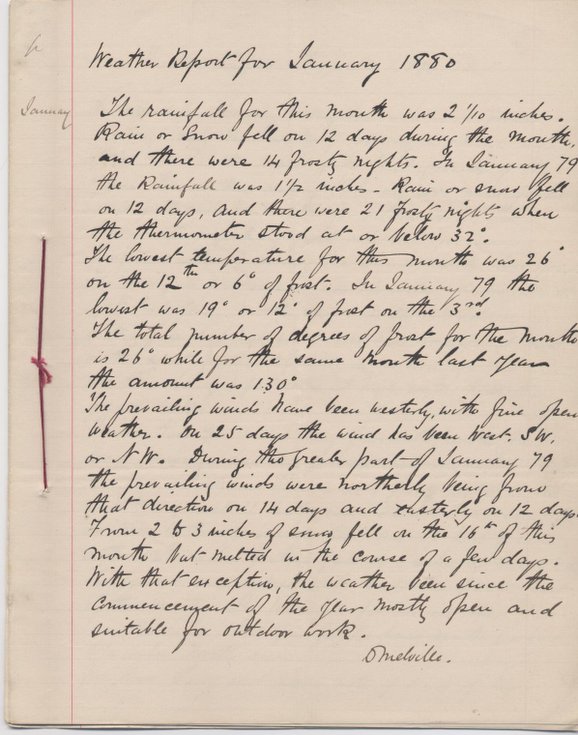 Weather Report for January 1880
January
The rainfall for this month was 2 1/10 inches.
Rain or Snow fell on 12 days during the month,
and there were 14 frosty nights. In January 79
the Rainfall was 1 1/2 inches - Rain or snow fell
on 12 days, and there were 21 frosty nights when
the thermometer stood at or below 32°.
The lowest temperature for this month was 26°
on the 12th or 6° of frost. In January 79 the
lowest was 19° or 12° of frost on the 3rd.
The total number of degrees of frost for the month
is 26° while for the same month last year
the amount was 130°
The prevailing winds have been westerly, with fine open
weather. On 25 days the wind has been West. S.W.
or N.W. During the greater part of January 79
the prevailing winds were northerly being from
that direction on 14 days and easterly on 12 days.
From 2 to 3 inches of snow fell on the 16th of this
month but melted in the course of a few days.
With that exception, the weather been since the
commencement of the year mostly open and
suitable for outdoor work.
D Melville.